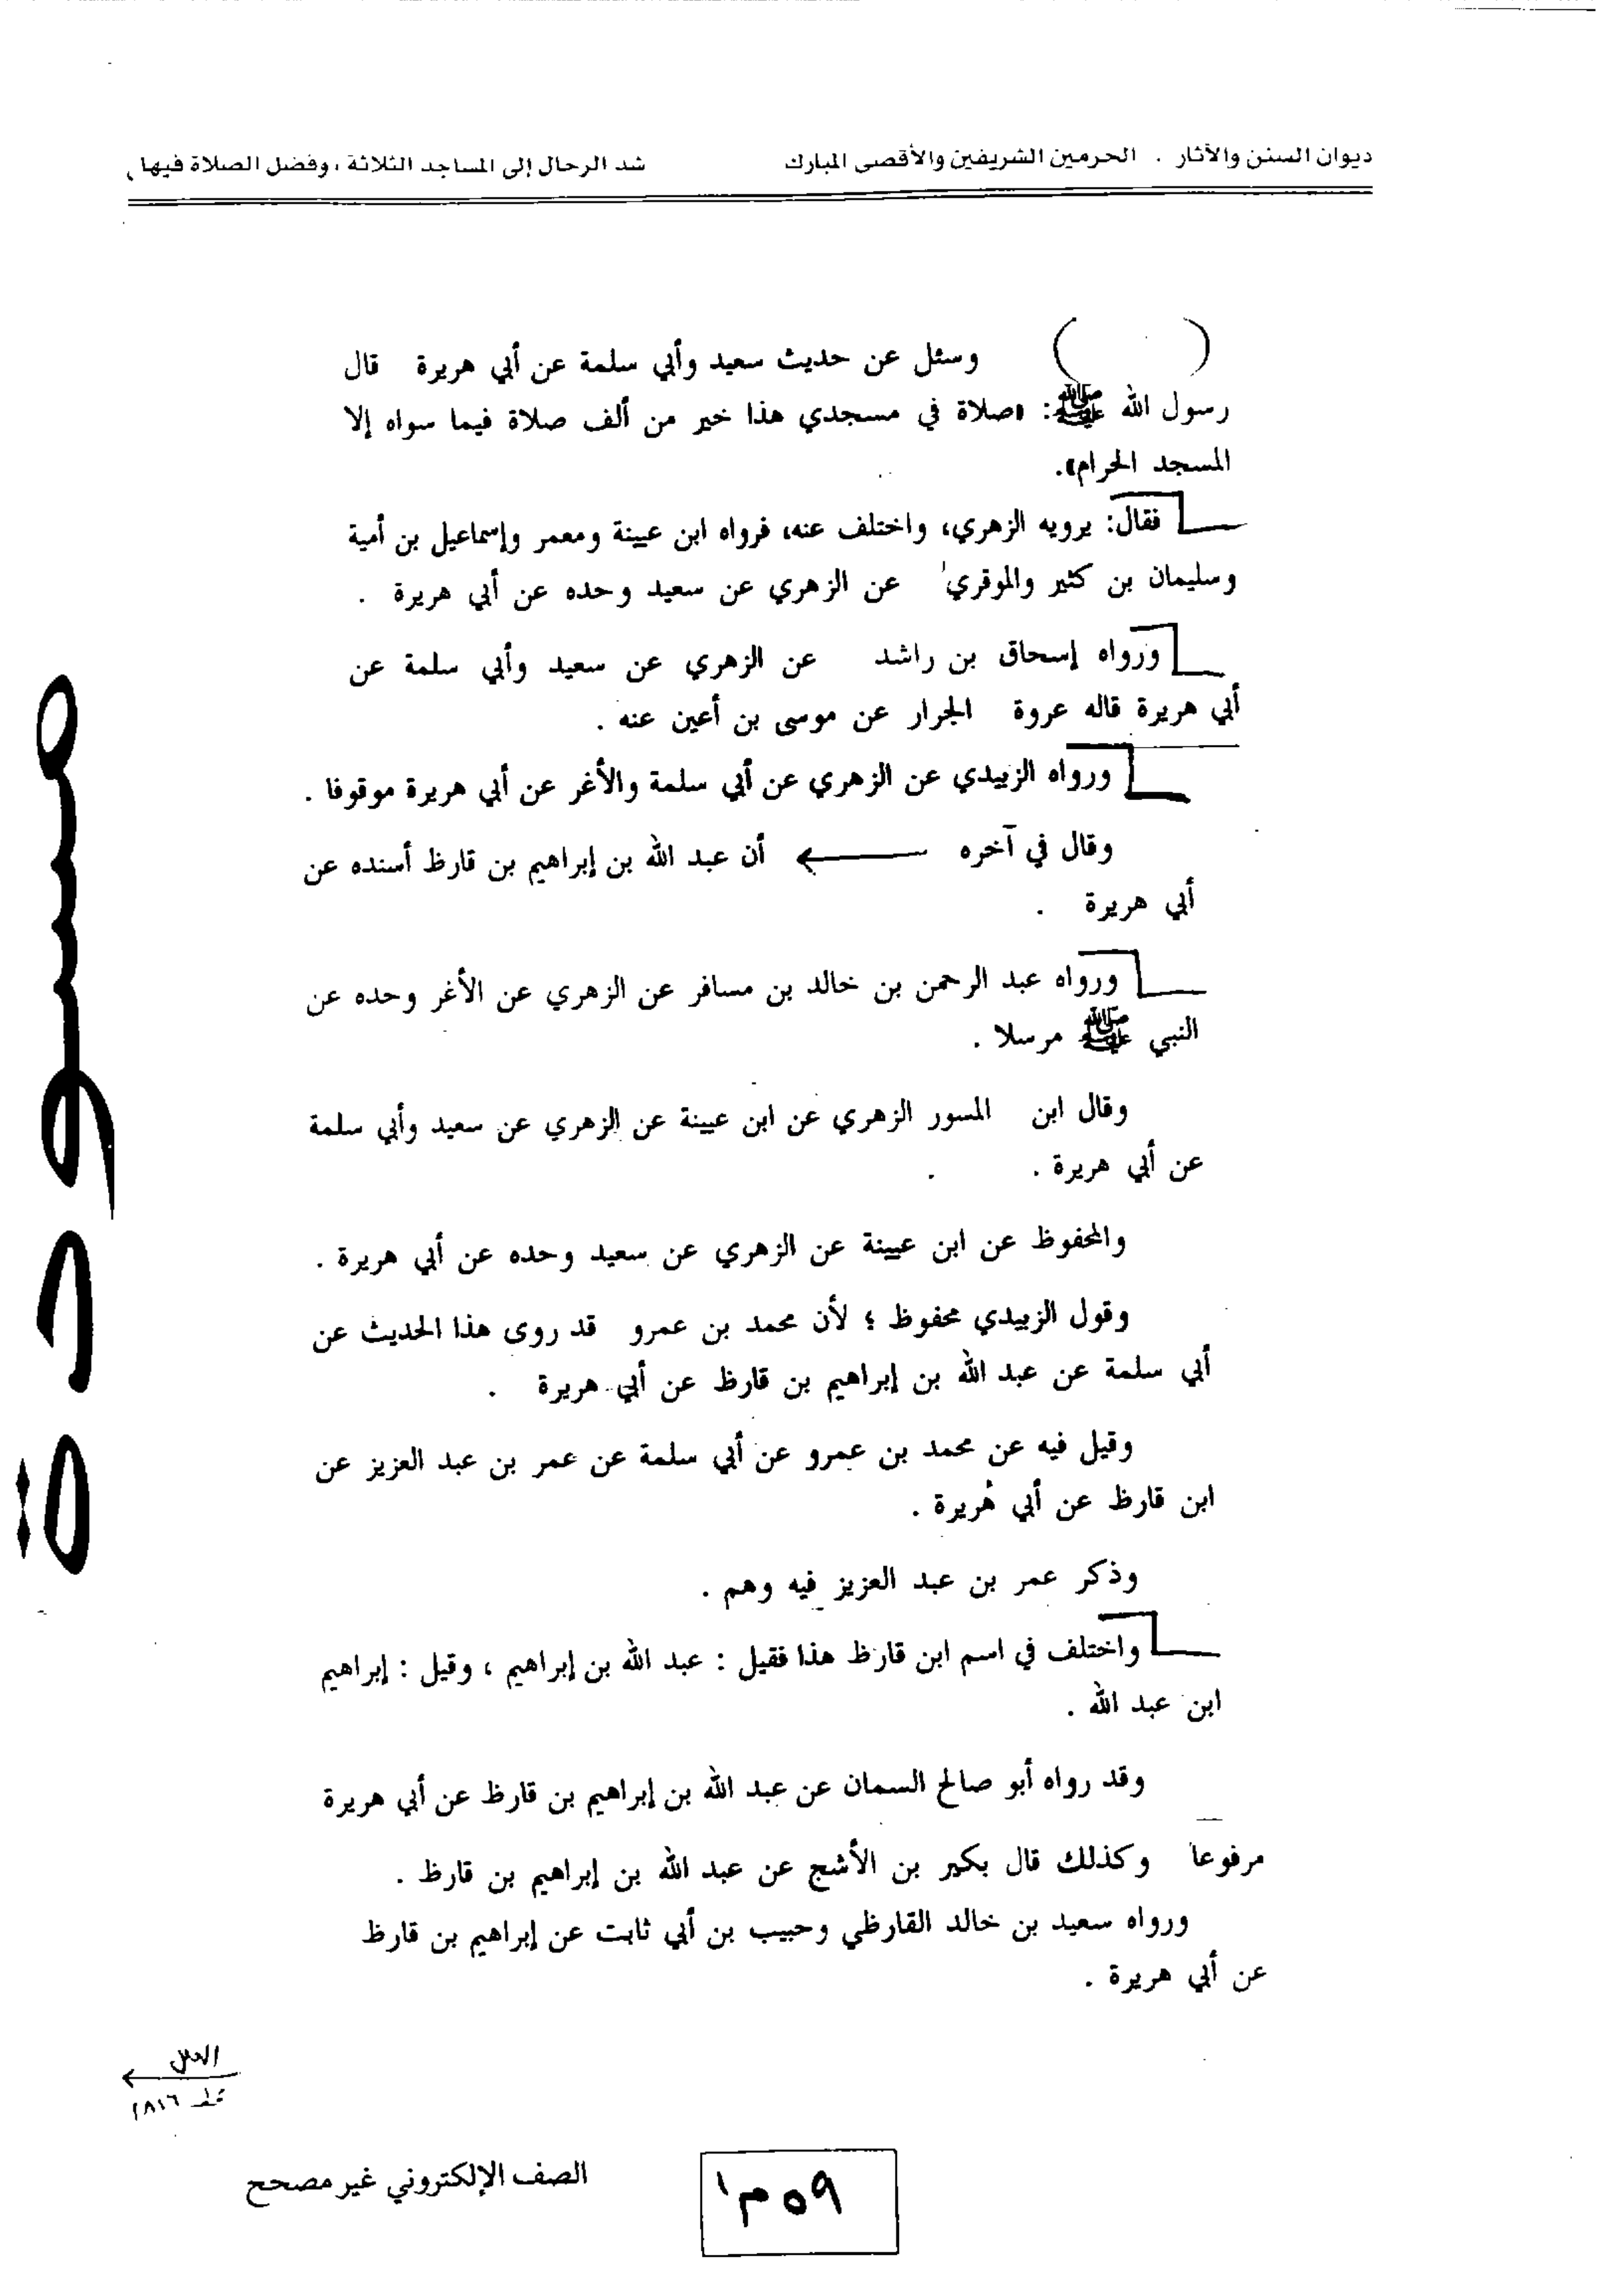 ديوان السنن والآثار . الحرمين الشريفين والأقصى المبارك شد الرحال إلى المساجد الثلاثة ، وفضل الصلاة فيها
( ) وسئل عن حديث سعيد وأبي سلمة عن أبي هريرة قال
رسول الله ﷺ: «صلاة في مسجدي هذا خير من ألف صلاة فيما سواه إلا
المسجد الحرام».
فقال: يرويه الزهري، واختلف عنه، فرواه ابن عيينة ومعمر وإسماعيل بن أمية
وسليمان بن كثير والموقري عن الزهري عن سعيد وحده عن أبي هريرة .
ورواه إسحاق بن راشد عن الزهري عن سعيد وأبي سلمة عن
أبي هريرة قاله عروة الجرار عن موسى بن أعين عنه .
ورواه الزبيدي عن الزهري عن أبي سلمة والأغر عن أبي هريرة موقوفا .
وقال في آخره ← أن عبد الله بن إبراهيم بن قارظ أسنده عن
أبي هريرة .
ورواه عبد الرحمن بن خالد بن مسافر عن الزهري عن الأغر وحده عن
النبي ﷺ مرسلا .
وقال ابن المسور الزهري عن ابن عيينة عن الزهري عن سعيد وأبي سلمة
عن أبي هريرة .
والمحفوظ عن ابن عيينة عن الزهري عن سعيد وحده عن أبي هريرة .
وقول الزبيدي محفوظ ؛ لأن محمد بن عمرو قد روى هذا الحديث عن
أبي سلمة عن عبد الله بن إبراهيم بن قارظ عن أبي هريرة .
وقيل فيه عن محمد بن عمرو عن أبي سلمة عن عمر بن عبد العزيز عن
ابن قارظ عن أبي هُريرة .
وذكر عمر بن عبد العزيز فيه وهم .
واختلف في اسم ابن قارظ هذا فقيل : عبد الله بن إبراهيم ، وقيل : إبراهيم
ابن عبد الله .
وقد رواه أبو صالح السمان عن عبد الله بن إبراهيم بن قارظ عن أبي هريرة
مرفوعا وكذلك قال بكير بن الأشج عن عبد الله بن إبراهيم بن قارظ .
ورواه سعيد بن خالد القارظي وحبيب بن أبي ثابت عن إبراهيم بن قارظ
عن أبي هريرة .
مسودة
العلل
١٨١٦
الصف الإلكتروني غير مصحح
٥٩ م١